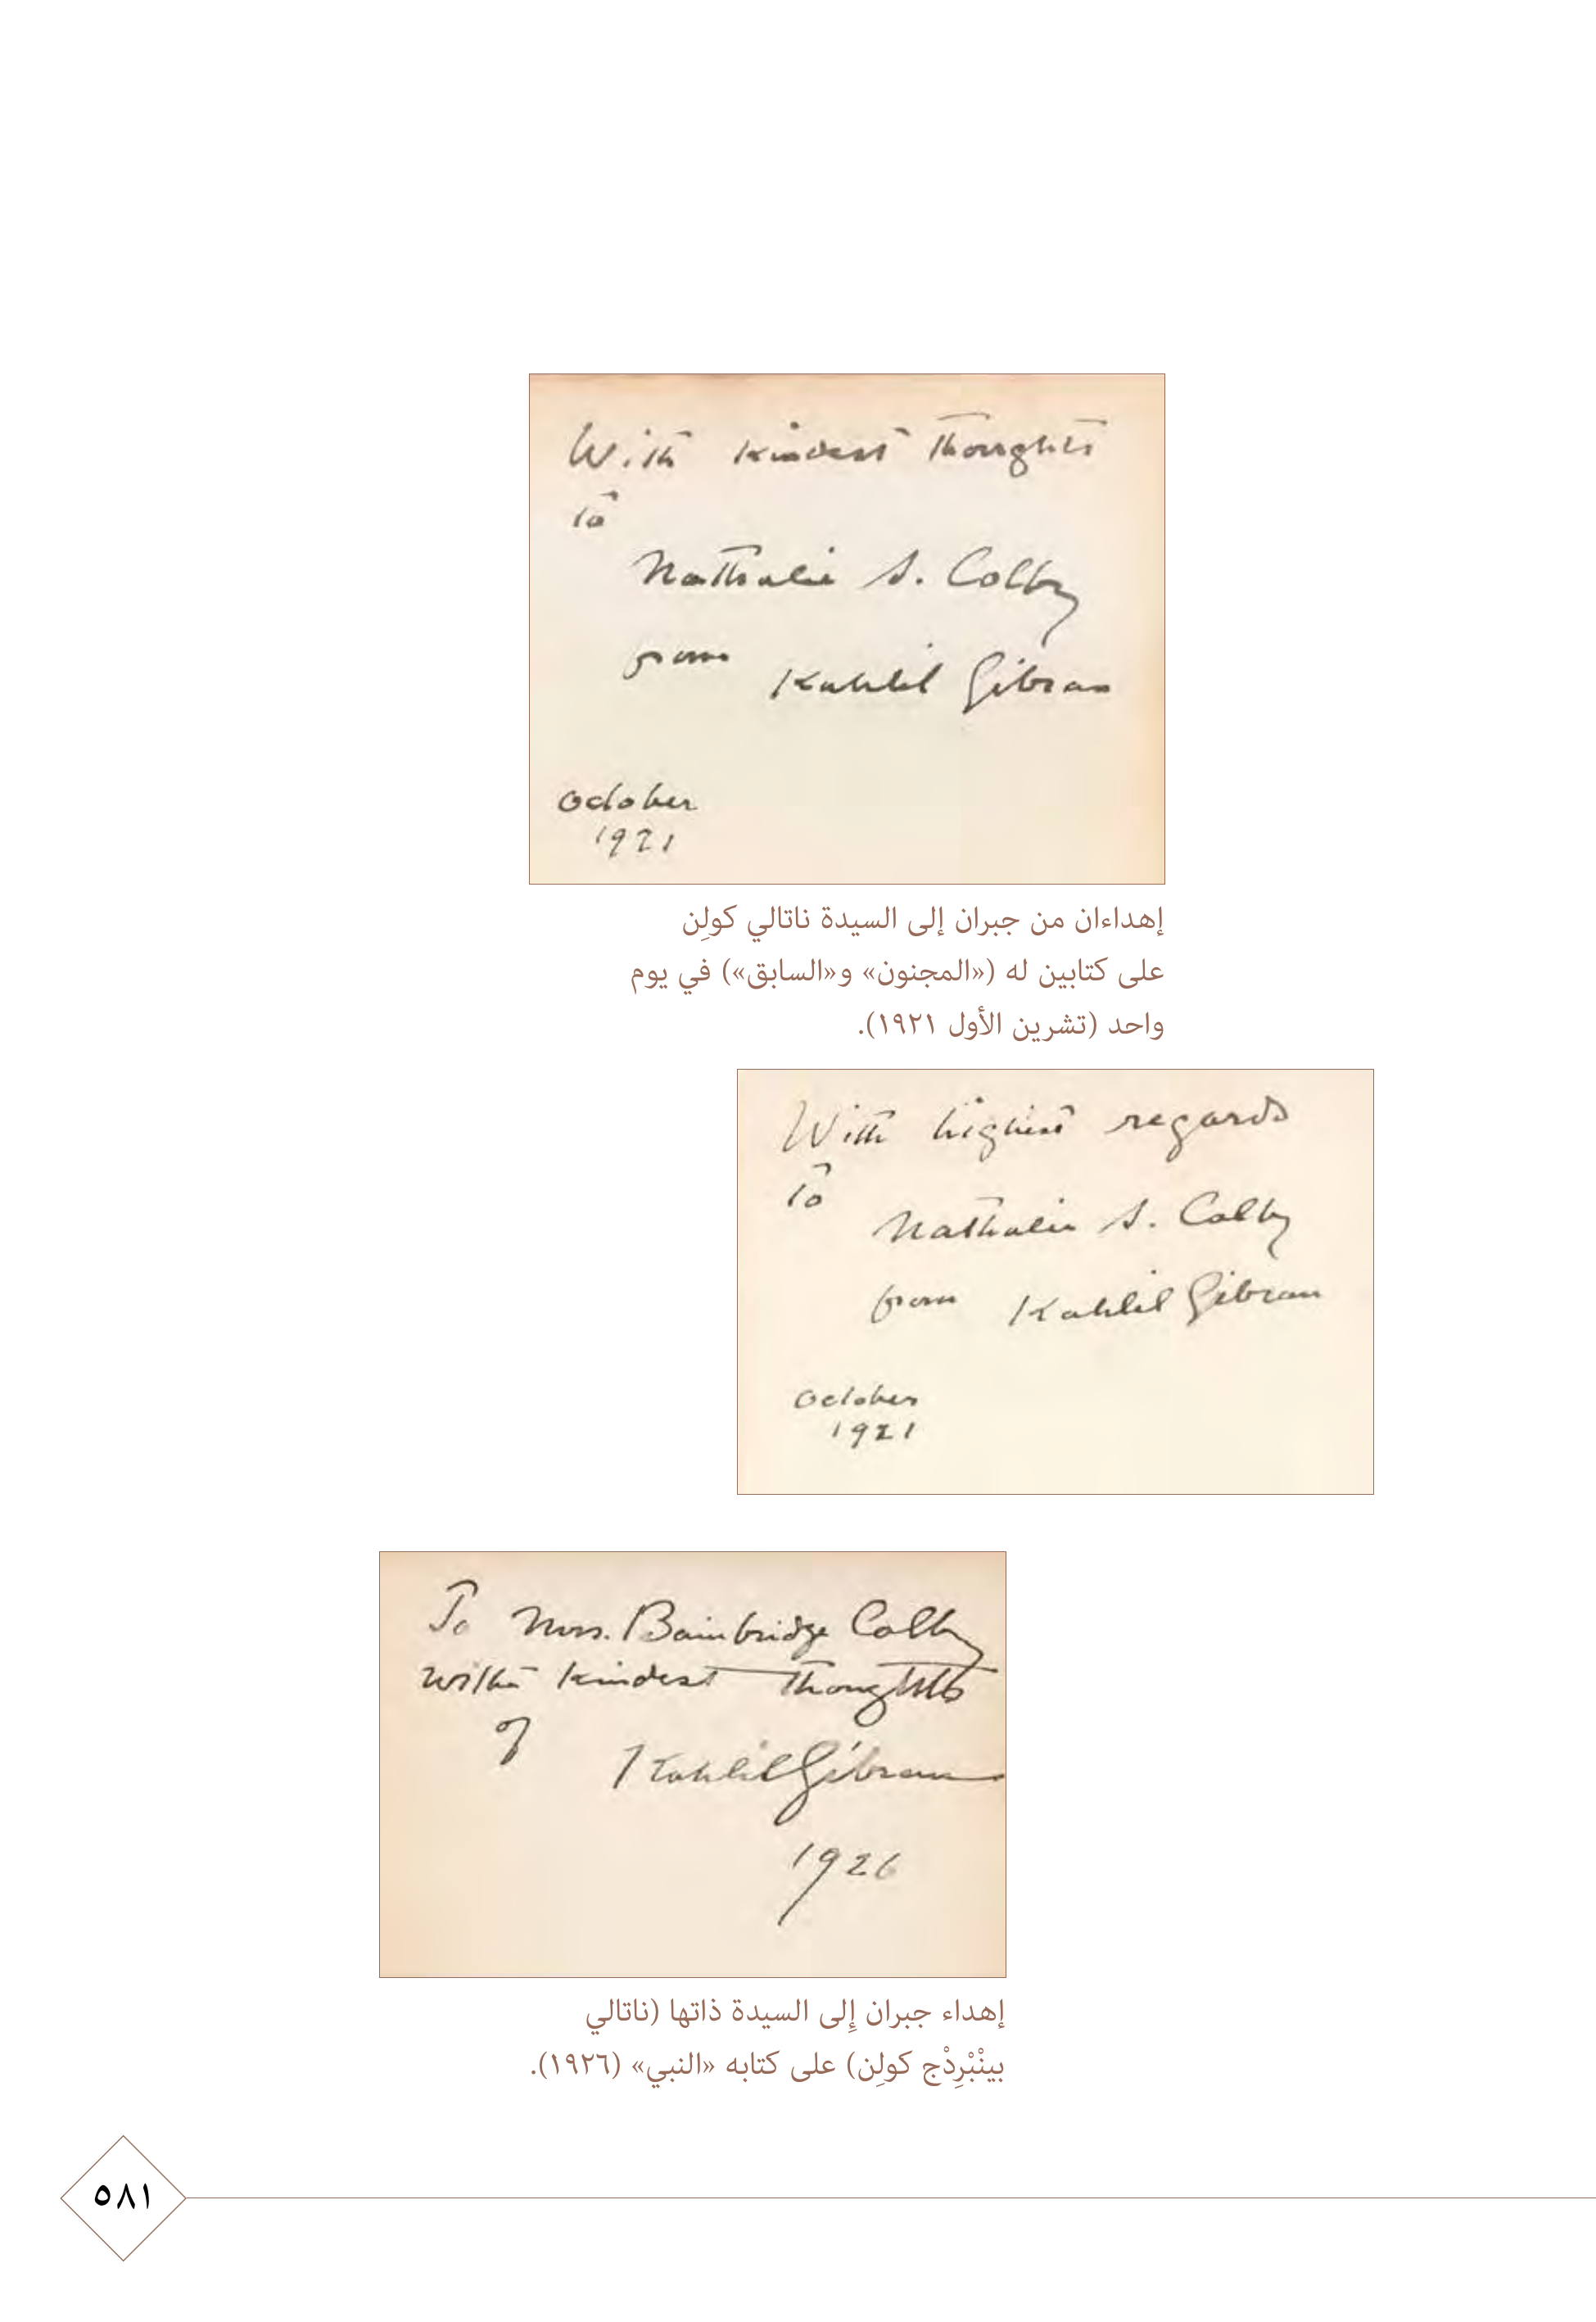 With kindest thoughts
to
Nathalie S. Colby
from Kahlil Gibran
October
1921
إهداءان من جبران إلى السيدة ناتالي كولِن
على كتابين له («المجنون» و«السابق») في يوم
واحد (تشرين الأول ١٩٢١).
With highest regards
to
Nathalie S. Colby
from Kahlil Gibran
October
1921
To Mrs. Bainbridge Colby
with kindest thoughts
of
Kahlil Gibran
1926
إهداء جبران إِلى السيدة ذاتها (ناتالي
بينْبْرِدْج كولِن) على كتابه «النبي» (١٩٢٦).
٥٨١